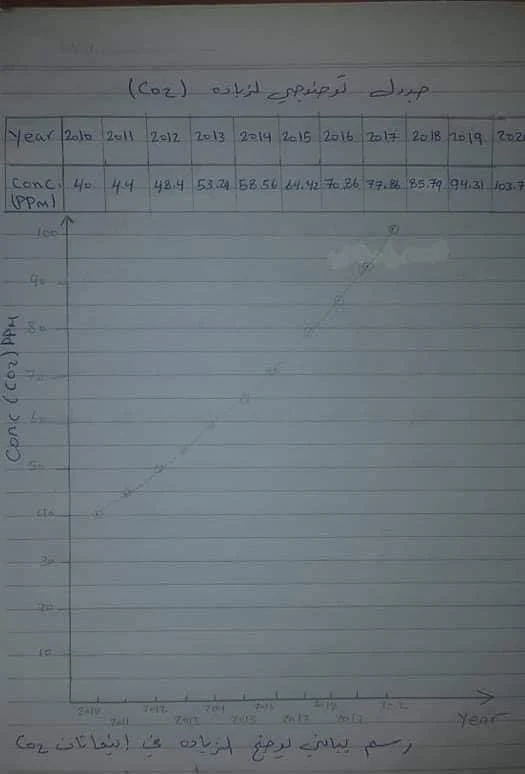 جدول توضيحي لزيادة (CO2)
Year 2010 2011 2012 2013 2014 2015 2016 2017 2018 2019
Conc. (PPM) 40 44 48.4 53.24 58.56 64.42 70.86 77.86 85.79 94.31 103.7
100
90
80
70
60
50
40
30
20
10
Conc (CO2) PPM
2010 2012
2011
Year
رسم بياني يوضح الزيادة في انبعاثات CO2